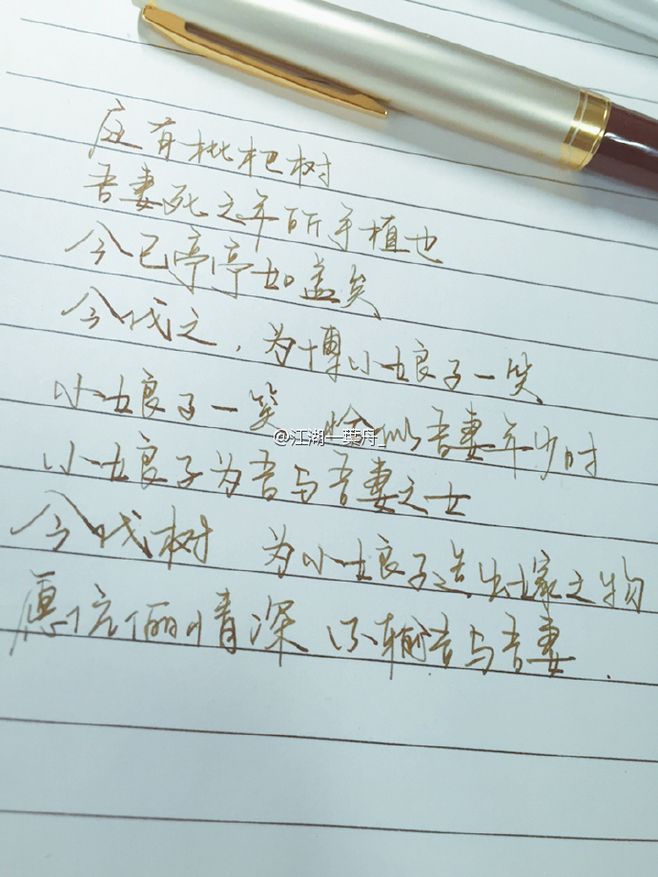 庭有枇杷树
吾妻死之年所手植也
今已亭亭如盖矣
今伐之,为博小娘子一笑
小娘子一笑 恰似吾妻年少时
@江湖一葉舟_
小娘子为吾与吾妻之女
今伐树 为小娘子造出嫁之物
愿伉俪情深 不输吾与吾妻.